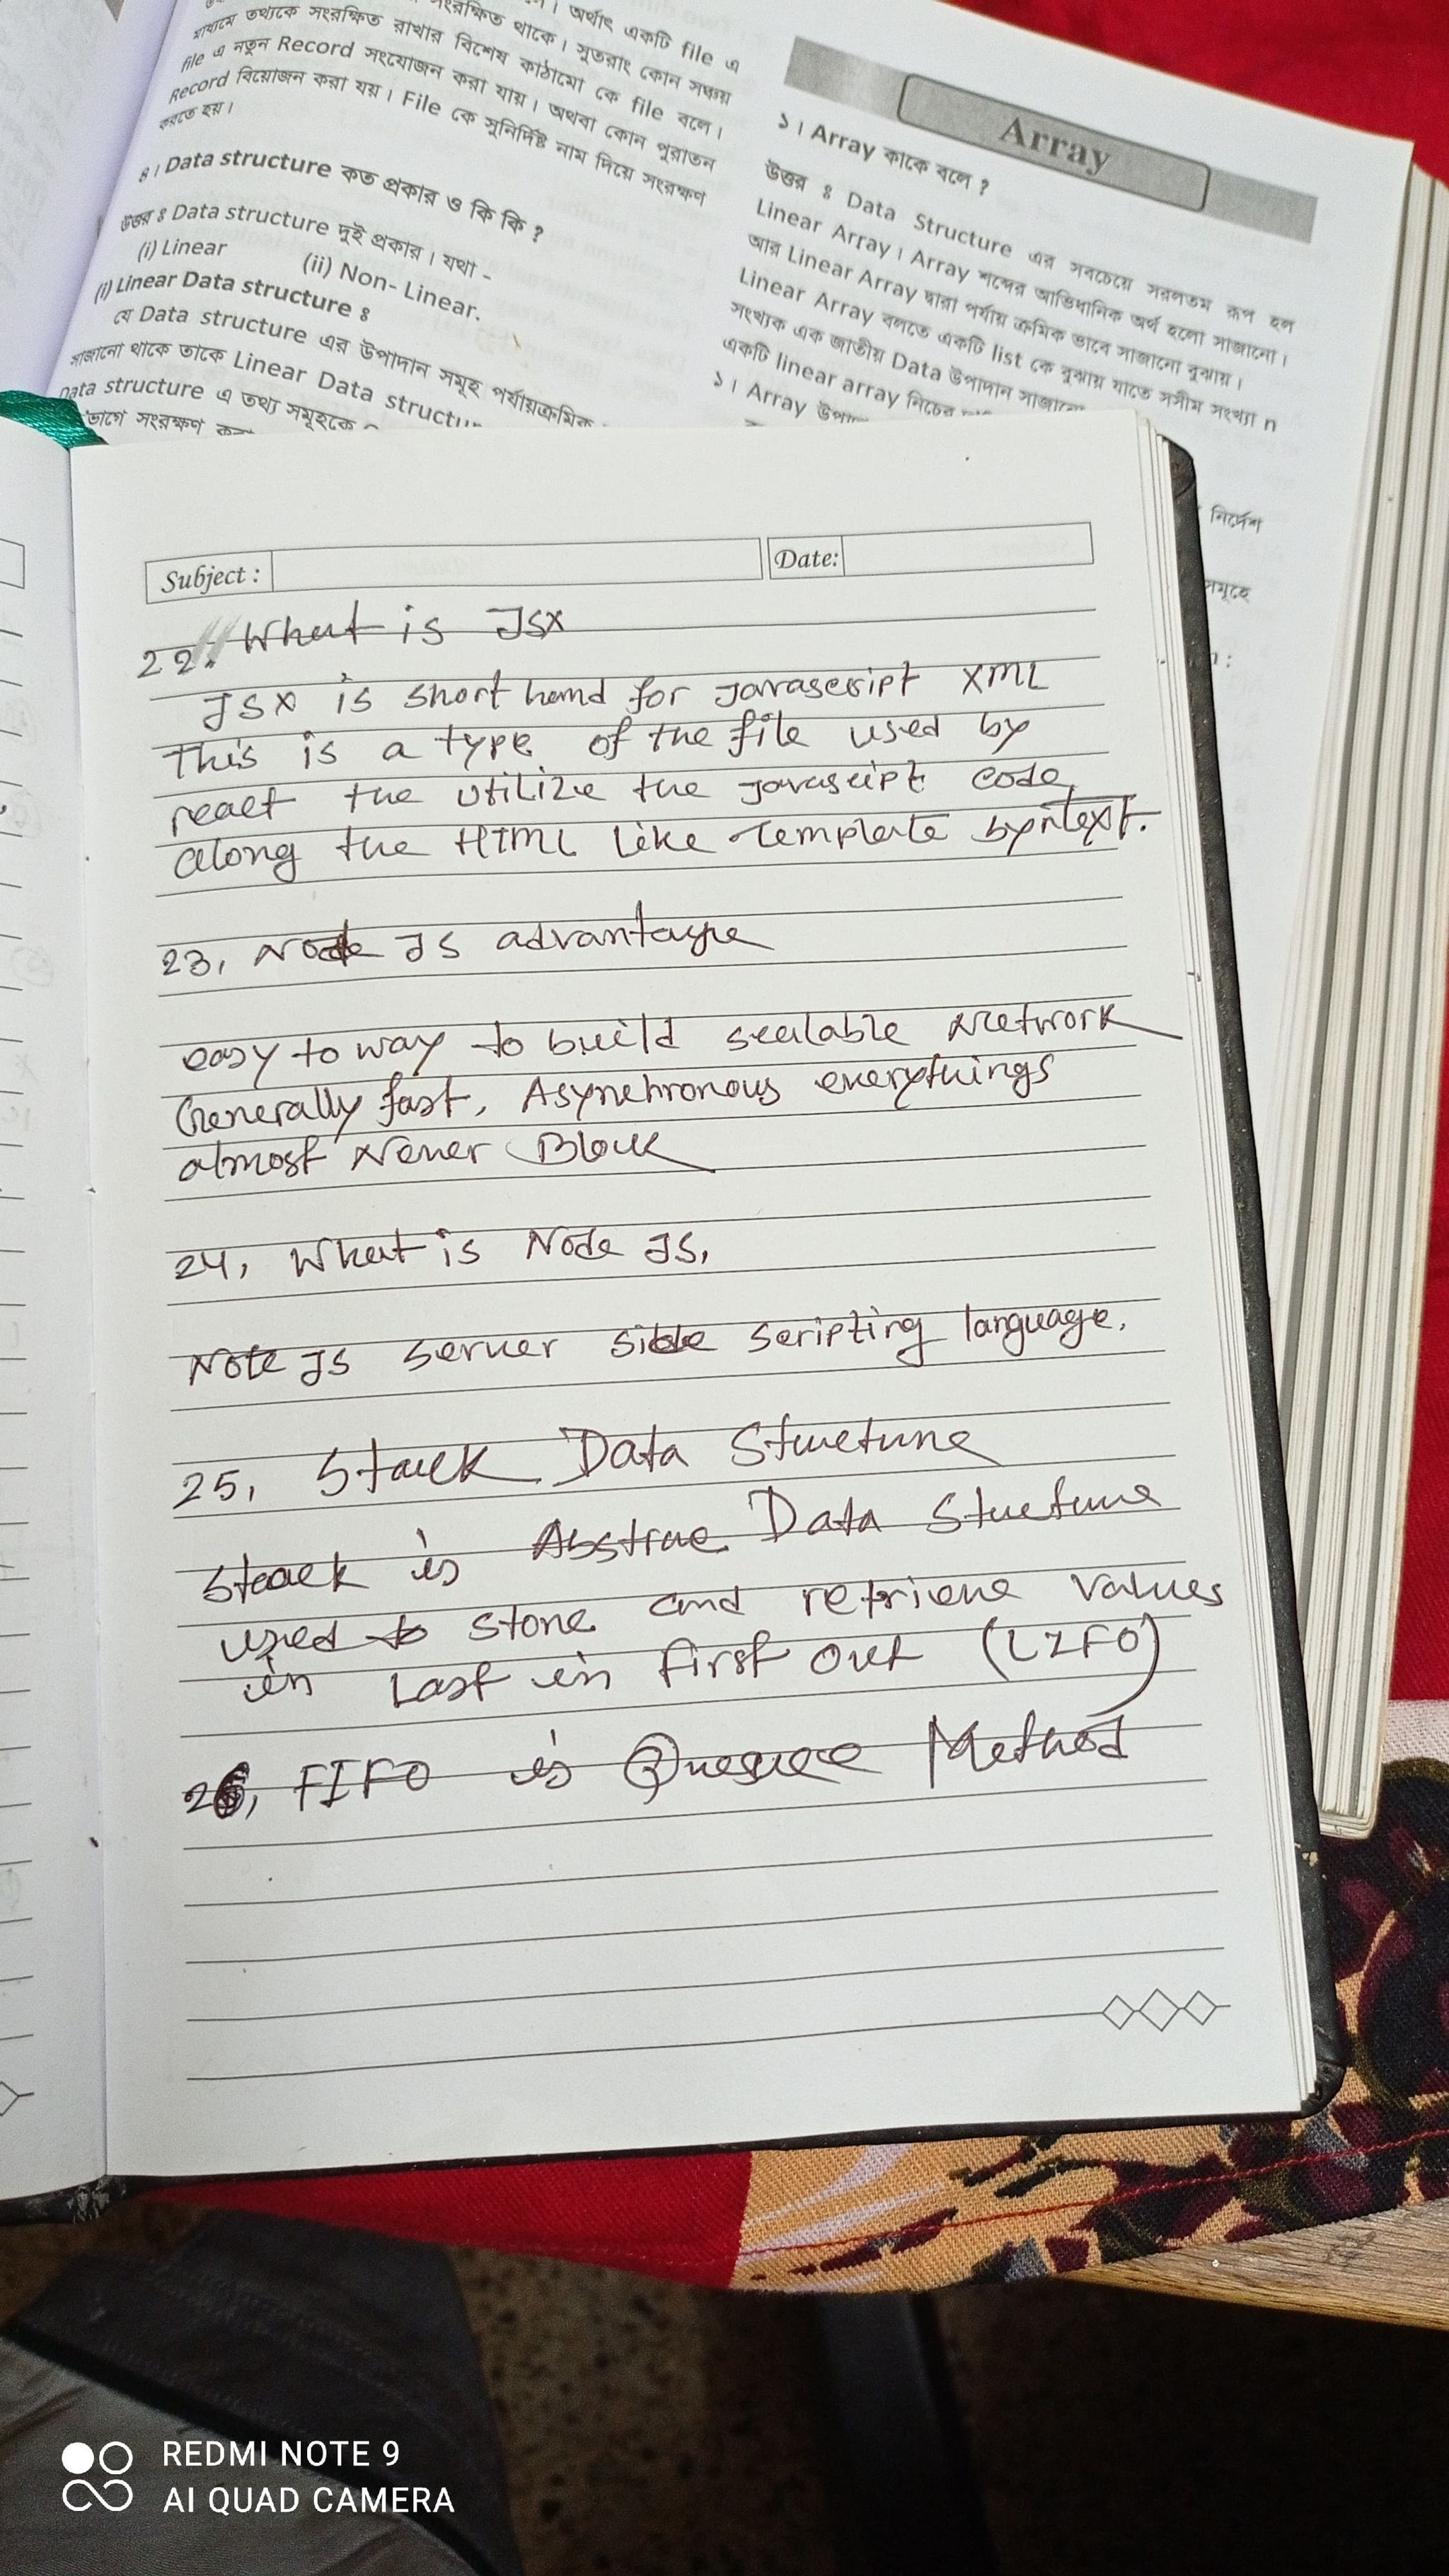 মাধ্যমে তথ্যকে সংরক্ষিত রাখার বিশেষ কাঠামো কে file বলে।
file এ নতুন Record সংযোজন করা যায়। অথবা কোন পুরাতন
Record বিয়োজন করা যয়। File কে সুনির্দিষ্ট নাম দিয়ে সংরক্ষণ
করতে হয়।
৪। Data structure কত প্রকার ও কি কি ?
উত্তর ঃ Data structure দুই প্রকার। যথা -
(i) Linear (ii) Non- Linear.
(i) Linear Data structure ঃ
যে Data structure এর উপাদান সমূহ পর্যায়ক্রমিক
সাজানো থাকে তাকে Linear Data
structure এ তথ্য সমূহকে
ভাগে সংরক্ষণ
Array
১। Array কাকে বলে ?
উত্তর ঃ Data Structure এর সবচেয়ে সরলতম রূপ হল
Linear Array। Array শব্দের আভিধানিক অর্থ হলো সাজানো।
আর Linear Array দ্বারা পর্যায় ক্রমিক ভাবে সাজানো বুঝায়।
Linear Array বলতে একটি list কে বুঝায় যাতে সসীম সংখ্যা n
সংখ্যক এক জাতীয় Data উপাদান
একটি linear array নিচের
১। Array
নির্দেশ
Subject :
Date:
22. What is JSX
JSX is short hand for Javascript XML
This is a type of the file used by
react the utilize the javascipt code
along the HTML like Template
23, Node JS advantage
easy to way to build scalable Network
Generally fast, Asynchronous everythings
almost Never Block
24, What is Node JS,
Note JS server side scripting language.
25, Stack Data Stucture
Stack is Abstrac Data Stucture
used to store and retrieve values
in Last in first out (LIFO)
26, FIFO is Method
REDMI NOTE 9
AI QUAD CAMERA